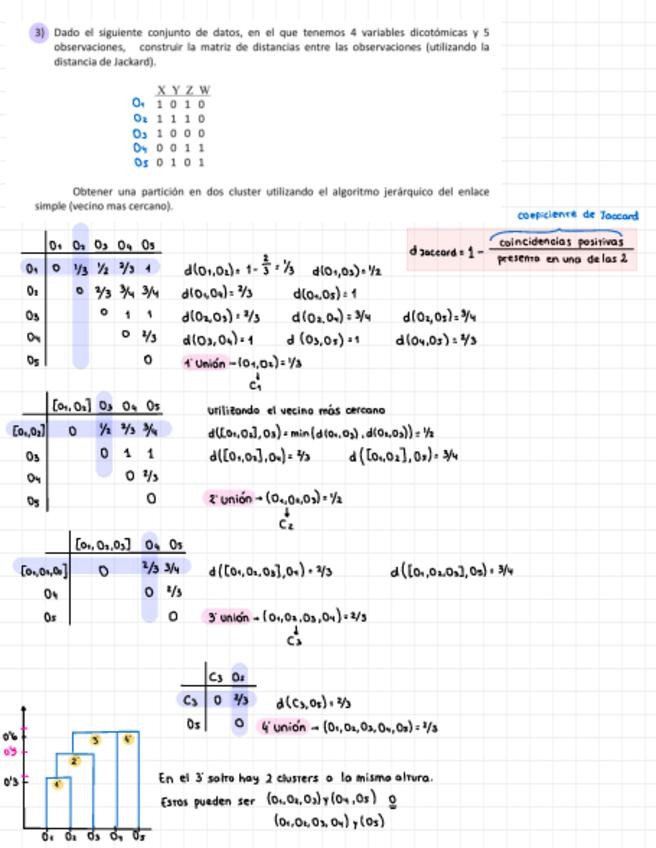 3) Dado el siguiente conjunto de datos, en el que tenemos 4 variables dicotómicas y 5
observaciones, construir la matriz de distancias entre las observaciones (utilizando la
distancia de Jackard).
X Y Z W
O₁ 1 0 1 0
O₂ 1 1 1 0
O₃ 1 0 0 0
O₄ 0 0 1 1
O₅ 0 1 0 1
Obtener una partición en dos cluster utilizando el algoritmo jerárquico del enlace
simple (vecino mas cercano).
coeficiente de Jaccard
d Jaccard = 1 - coincidencias positivas
presenta en una de las 2
O₁ O₂ O₃ O₄ O₅
O₁ 0 1/3 1/2 2/3 1
O₂ 0 2/3 3/4 3/4
O₃ 0 1 1
O₄ 0 2/3
O₅ 0
d(O₁,O₂) = 1 - 2/3 = 1/3 d(O₁,O₃) = 1/2
d(O₁,O₄) = 2/3 d(O₁,O₅) = 1
d(O₂,O₃) = 2/3 d(O₂,O₄) = 3/4 d(O₂,O₅) = 3/4
d(O₃,O₄) = 1 d(O₃,O₅) = 1 d(O₄,O₅) = 2/3
1ª Unión → (O₁,O₂) = 1/3
C₁
[O₁,O₂] O₃ O₄ O₅
[O₁,O₂] 0 1/2 2/3 3/4
O₃ 0 1 1
O₄ 0 2/3
O₅ 0
utilizando el vecino más cercano
d([O₁,O₂],O₃) = min(d(O₁,O₃), d(O₂,O₃)) = 1/2
d([O₁,O₂],O₄) = 2/3 d([O₁,O₂],O₅) = 3/4
2ª unión → (O₁,O₂,O₃) = 1/2
C₂
[O₁,O₂,O₃] O₄ O₅
[O₁,O₂,O₃] 0 2/3 3/4
O₄ 0 2/3
O₅ 0
d([O₁,O₂,O₃],O₄) = 2/3 d([O₁,O₂,O₃],O₅) = 3/4
3ª unión → (O₁,O₂,O₃,O₄) = 2/3
C₃
C₃ O₅
C₃ 0 2/3
O₅ 0
d(C₃,O₅) = 2/3
4ª unión → (O₁,O₂,O₃,O₄,O₅) = 2/3
0'6
0'5
0'3
1ª
2ª
3ª
4ª
O₁ O₂ O₃ O₄ O₅
En el 3ª salto hay 2 clusters a la misma altura.
Estos pueden ser (O₁,O₂,O₃) y (O₄,O₅) o
(O₁,O₂,O₃,O₄) y (O₅)